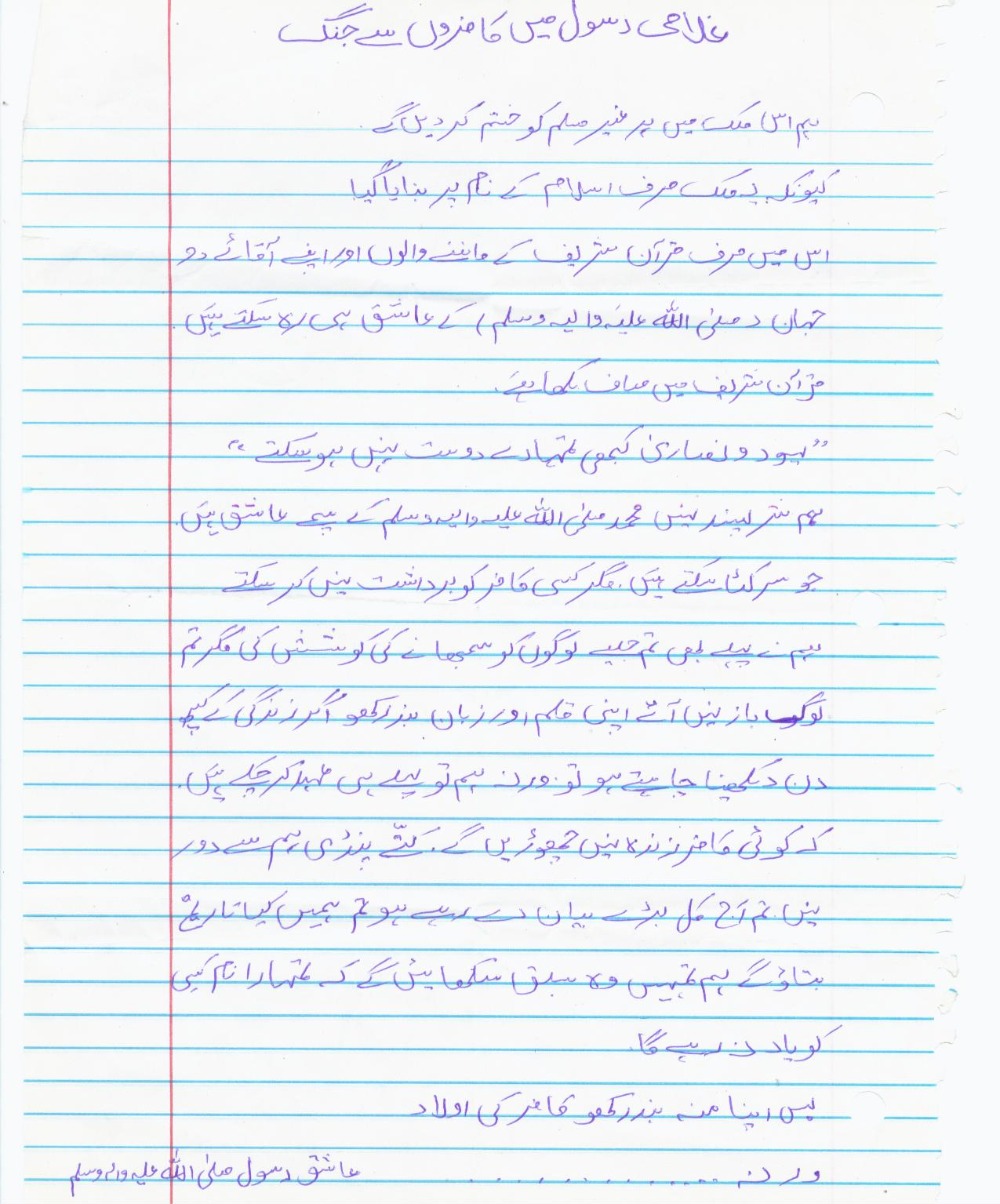 غلامی رسول میں کافروں سے جنگ
ہم اس ملک میں ہر غیر مسلم کو ختم کر دیں گے۔
کیونکہ یہ ملک صرف اسلام کے نام پر بنایا گیا
اس میں صرف قرآن شریف کے ماننے والوں اور اپنے آقائے دو
جہان (صلی اللہ علیہ والہ وسلم) کے عاشق ہی رہ سکتے ہیں۔
قرآن شریف میں صاف لکھا ہے۔
”یہود و نصاریٰ کبھی تمہارے دوست نہیں ہو سکتے“
ہم شر پسند نہیں محمد صلی اللہ علیہ والہ وسلم کے سچے عاشق ہیں۔
جو سر کٹا سکتے ہیں۔ مگر کسی کافر کو برداشت نہیں کر سکتے
ہم نے پہلے بھی تم جیسے لوگوں کو سمجھانے کی کوشش کی مگر تم
لوگ باز نہیں آئے اپنی قلم اور زبان بند رکھو اگر زندگی کے کچھ
دن دیکھنا چاہتے ہو تو۔ ورنہ ہم تو پہلے ہی عہد کر چکے ہیں۔
کہ کوئی کافر زندہ نہیں چھوڑیں گے۔ پنڈی ہم سے دور
نہیں تم آج کل بڑے بیان دے رہے ہو تم ہمیں کیا تاریخ
بتاؤ گے ہم تمہیں وہ سبق سکھائیں گے کہ تمہارا نام کسی
کو یاد نہ رہے گا۔
بس اپنا منہ بند رکھو کافر کی اولاد
ورنہ ............... عاشق رسول صلی اللہ علیہ والہ وسلم